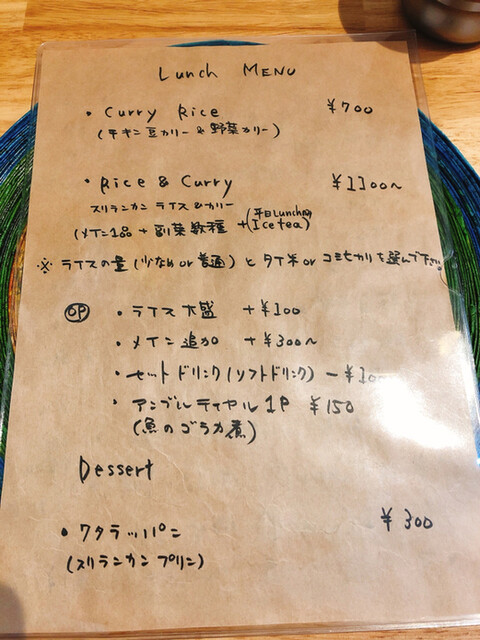 Lunch MENU
・Curry Rice ¥700
(チキン豆カリー & 野菜カリー)
・Rice & Curry ¥1100~
スリランカン ライス&カリー
(メイン1品 + 副菜数種 + (平日Lunch時 Ice tea)
※ ライスの量(少なめ or 普通)とタイ米 or コシヒカリを選んで下さい
OP ・ライス大盛 +¥100
・メイン追加 +¥300~
・セットドリンク(ソフトドリンク) -¥100
・アンブルティヤル 1P ¥150
(魚のゴラカ煮)
Dessert
・ワタラッパン ¥300
(スリランカン プリン)